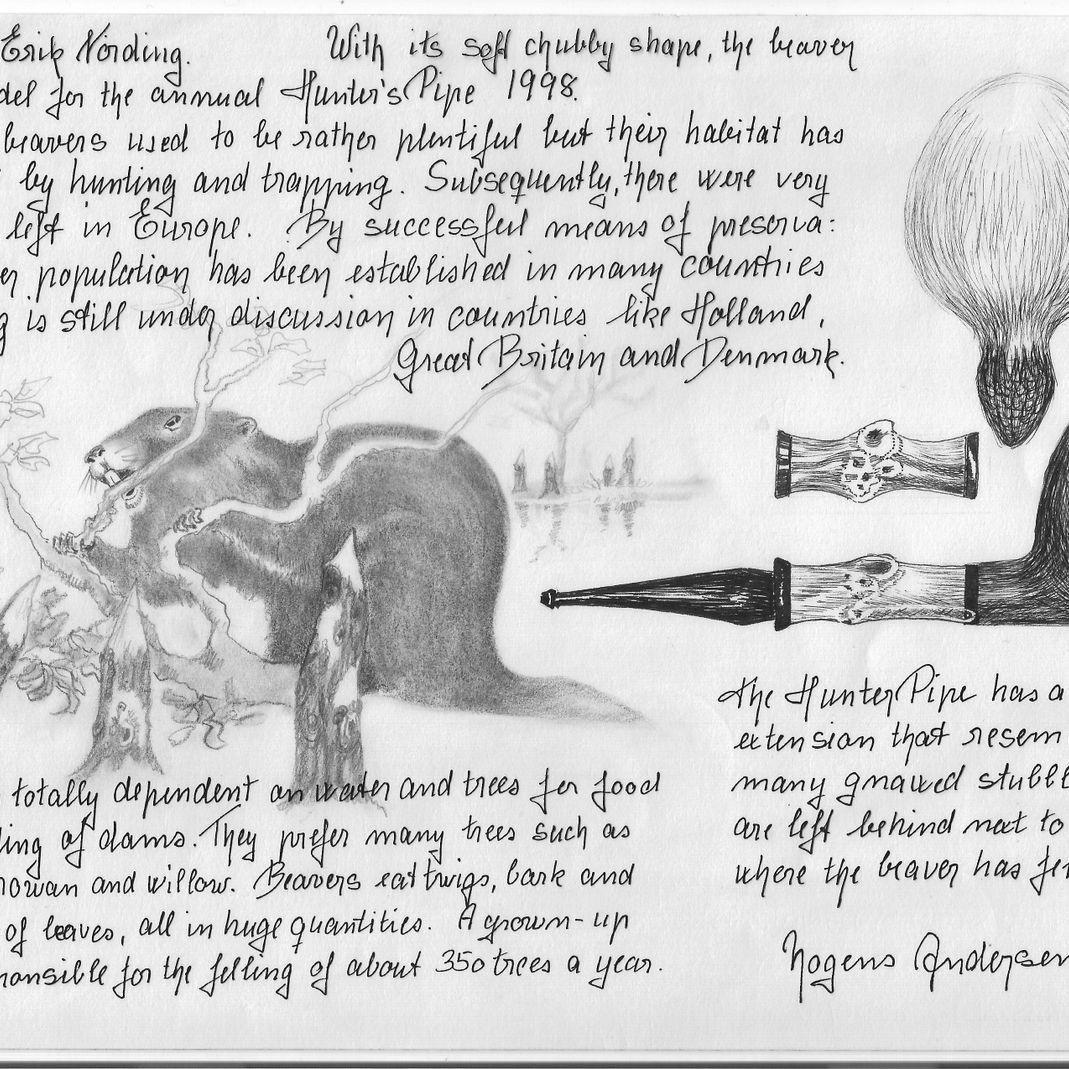 Erik Nørding. With its soft chubby shape, the beaver
del for the annual Hunter's Pipe 1998.
beavers used to be rather plentiful but their habitat has
by hunting and trapping. Subsequently, there were very
left in Europe. By successful means of preserva:
er population has been established in many countries
g is still under discussion in countries like Holland,
Great Britain and Denmark.
the Hunter Pipe has a
extension that resem
many gnawed stubb
are left behind next to
where the beaver has fe
totally dependent on water and trees for food
ding of dams. They prefer many trees such as
rowan and willow. Beavers eat twigs, bark and
of leaves, all in huge quantities. A grown-up
ponsible for the felling of about 350 trees a year.
Mogens Andersen